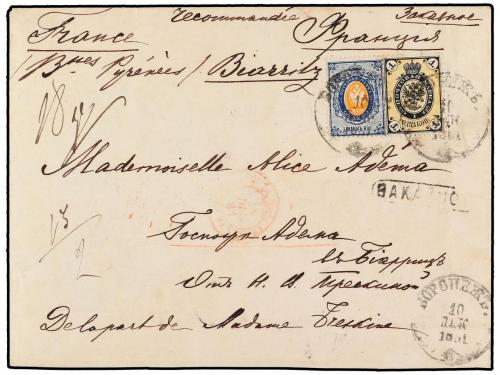 recommandée Заказное
France Франція
/Bses Pyrénées/ Biarritz
Mademoiselle Alice Adéma
ЗАКАЗНОЕ
Госпожѣ Адема
въ Біаррицъ
Отъ Н. И. Трескиной
De la part de Madame Treskine
ВОРОНЕЖЪ
10
ДЕК
1881